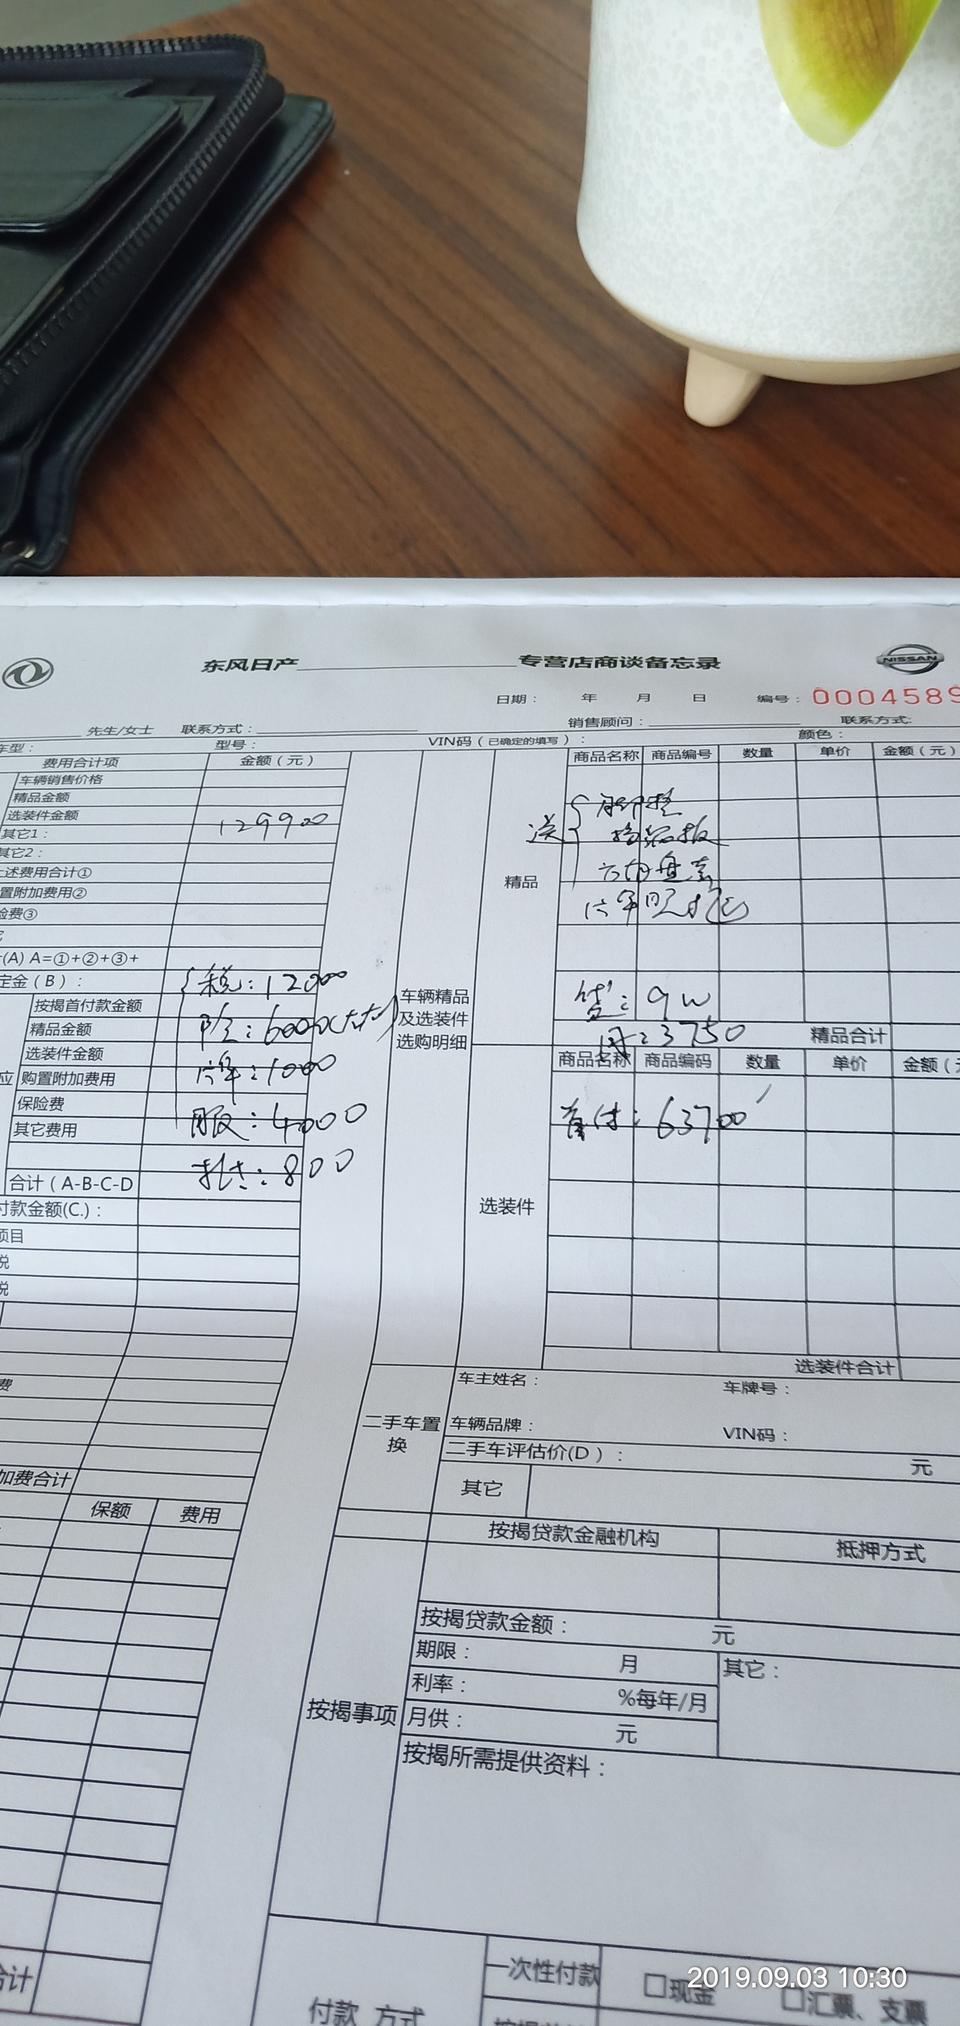 东风日产 专营店商谈备忘录
NISSAN
日期： 年 月 日 编号：0004589
先生/女士 联系方式： 销售顾问： 联系方式:
车型： 型号： VIN码（已确定的填写）： 颜色：
费用合计项 金额（元）
车辆销售价格
精品金额
选装件金额
其它1： 129900
其它2：
述费用合计①
置附加费用②
险费③
(A) A=①+②+③+
定金（B）：
按揭首付款金额
精品金额
选装件金额
应 购置附加费用
保险费
其它费用
合计（A-B-C-D
付款金额(C.)：
项目
税
税
费
加费合计
保额 费用
合计
税：12000
险：6000
1000
服：4000
800
车辆精品
及选装件
选购明细
精品
商品名称 商品编号 数量 单价 金额（元）
送
9w
月：3750
精品合计
选装件
商品名称 商品编码 数量 单价 金额（元
首付：63700
选装件合计
二手车置
换
车主姓名： 车牌号：
车辆品牌： VIN码：
二手车评估价(D）： 元
其它
按揭事项
按揭贷款金融机构 抵押方式
按揭贷款金额： 元
期限： 月 其它：
利率： %每年/月
月供： 元
按揭所需提供资料：
付款 方式
一次性付款 □现金 □汇票、支票
2019.09.03 10:30